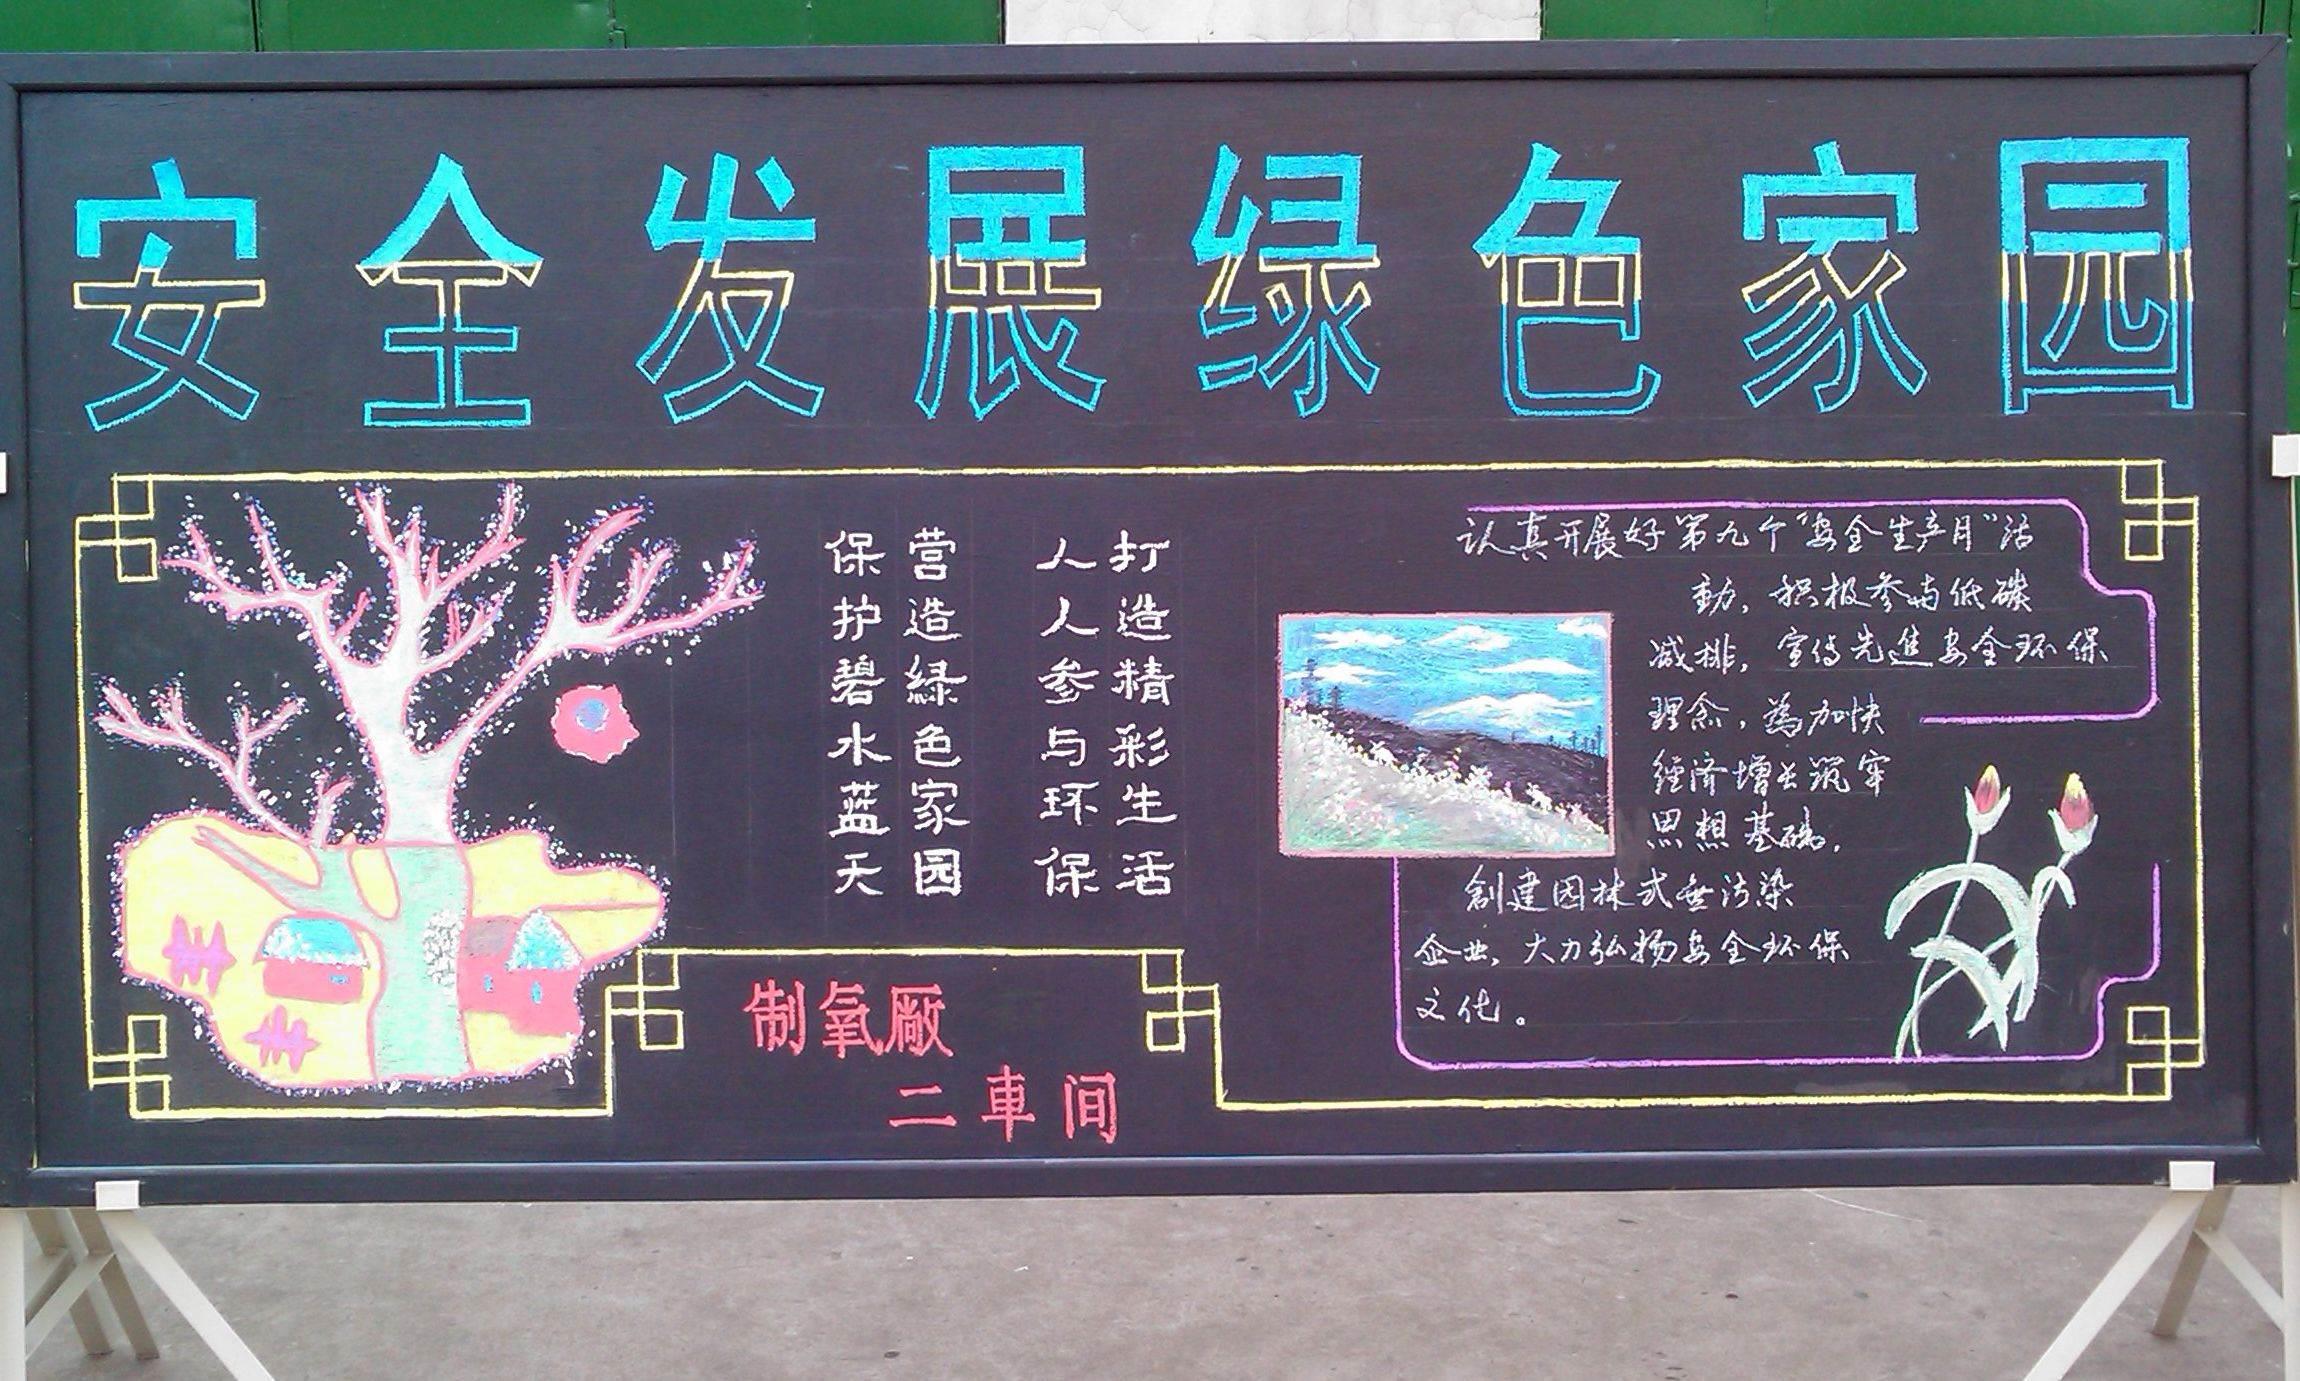 安全发展绿色家园
打造精彩生活
人人参与环保
营造緑色家园
保护碧水蓝天
认真开展好第九个“安全生产月”活
動，积极参与低碳
减排，宣传先進安全环保
理念，為加快
經济增长筑牢
思想基础，
創建园林式無污染
企业，大力弘扬安全环保
文化。
制氧廠
二車间